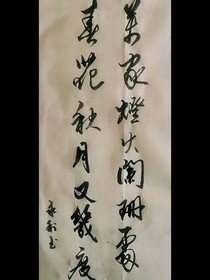 萬家燈火闌珊處
春花秋月又幾度